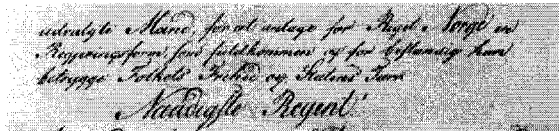 udvalgte Mænd, for at anlægge for Riget Norge en
Regjeringsform, som fuldkommen og for bestandig kan
betrygge Folkets Frihed og Statens Tarv
Naadigste Regent!